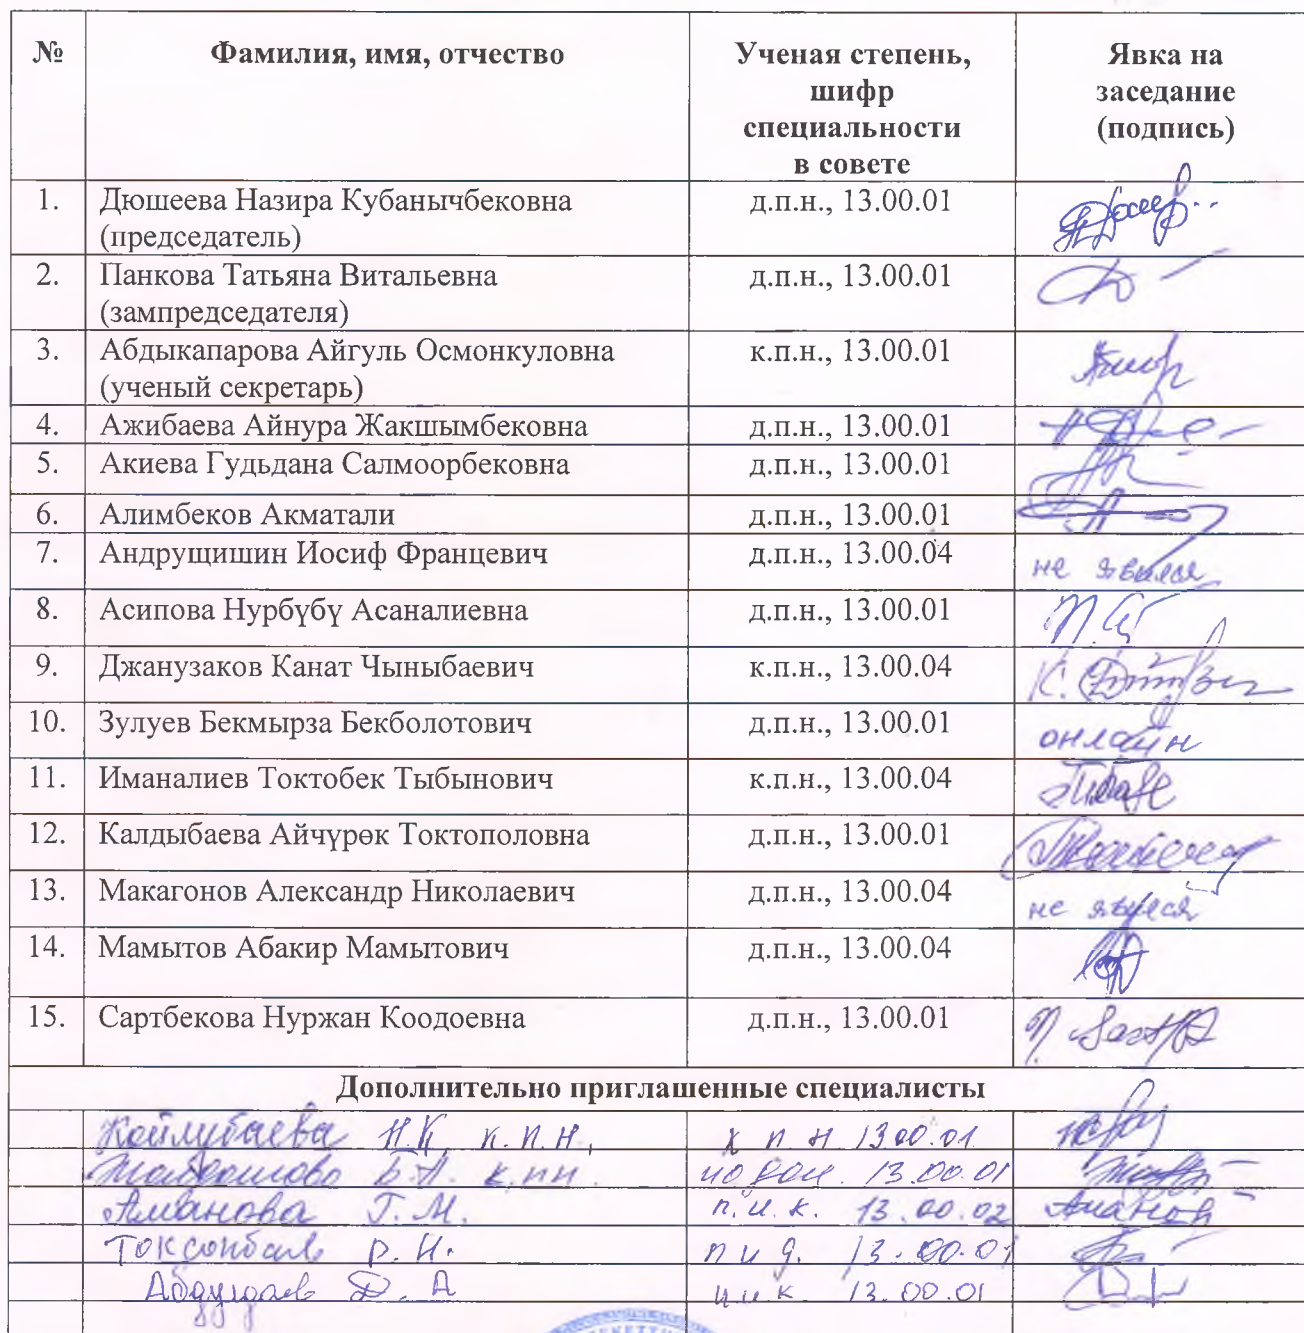 № Фамилия, имя, отчество Ученая степень, шифр специальности в совете Явка на заседание (подпись)
1. Дюшеева Назира Кубанычбековна д.п.н., 13.00.01
(председатель)
2. Панкова Татьяна Витальевна д.п.н., 13.00.01
(зампредседателя)
3. Абдыкапарова Айгуль Осмонкуловна к.п.н., 13.00.01
(ученый секретарь)
4. Ажибаева Айнура Жакшымбековна д.п.н., 13.00.01
5. Акиева Гудьдана Салмоорбековна д.п.н., 13.00.01
6. Алимбеков Акматали д.п.н., 13.00.01
7. Андрущишин Иосиф Францевич д.п.н., 13.00.04 не явился
8. Асипова Нурбүбү Асаналиевна д.п.н., 13.00.01
9. Джанузаков Канат Чыныбаевич к.п.н., 13.00.04
10. Зулуев Бекмырза Бекболотович д.п.н., 13.00.01 онлайн
11. Иманалиев Токтобек Тыбынович к.п.н., 13.00.04
12. Калдыбаева Айчүрөк Токтополовна д.п.н., 13.00.01
13. Макагонов Александр Николаевич д.п.н., 13.00.04 не явился
14. Мамытов Абакир Мамытович д.п.н., 13.00.04
15. Сартбекова Нуржан Коодоевна д.п.н., 13.00.01
Дополнительно приглашенные специалисты
Койлубаева Н.К. к.п.н., к п н 13.00.01
13.00.01
Аманова Г.М. 13.00.02
Р.И. 13.00.01
Д.А 13.00.01